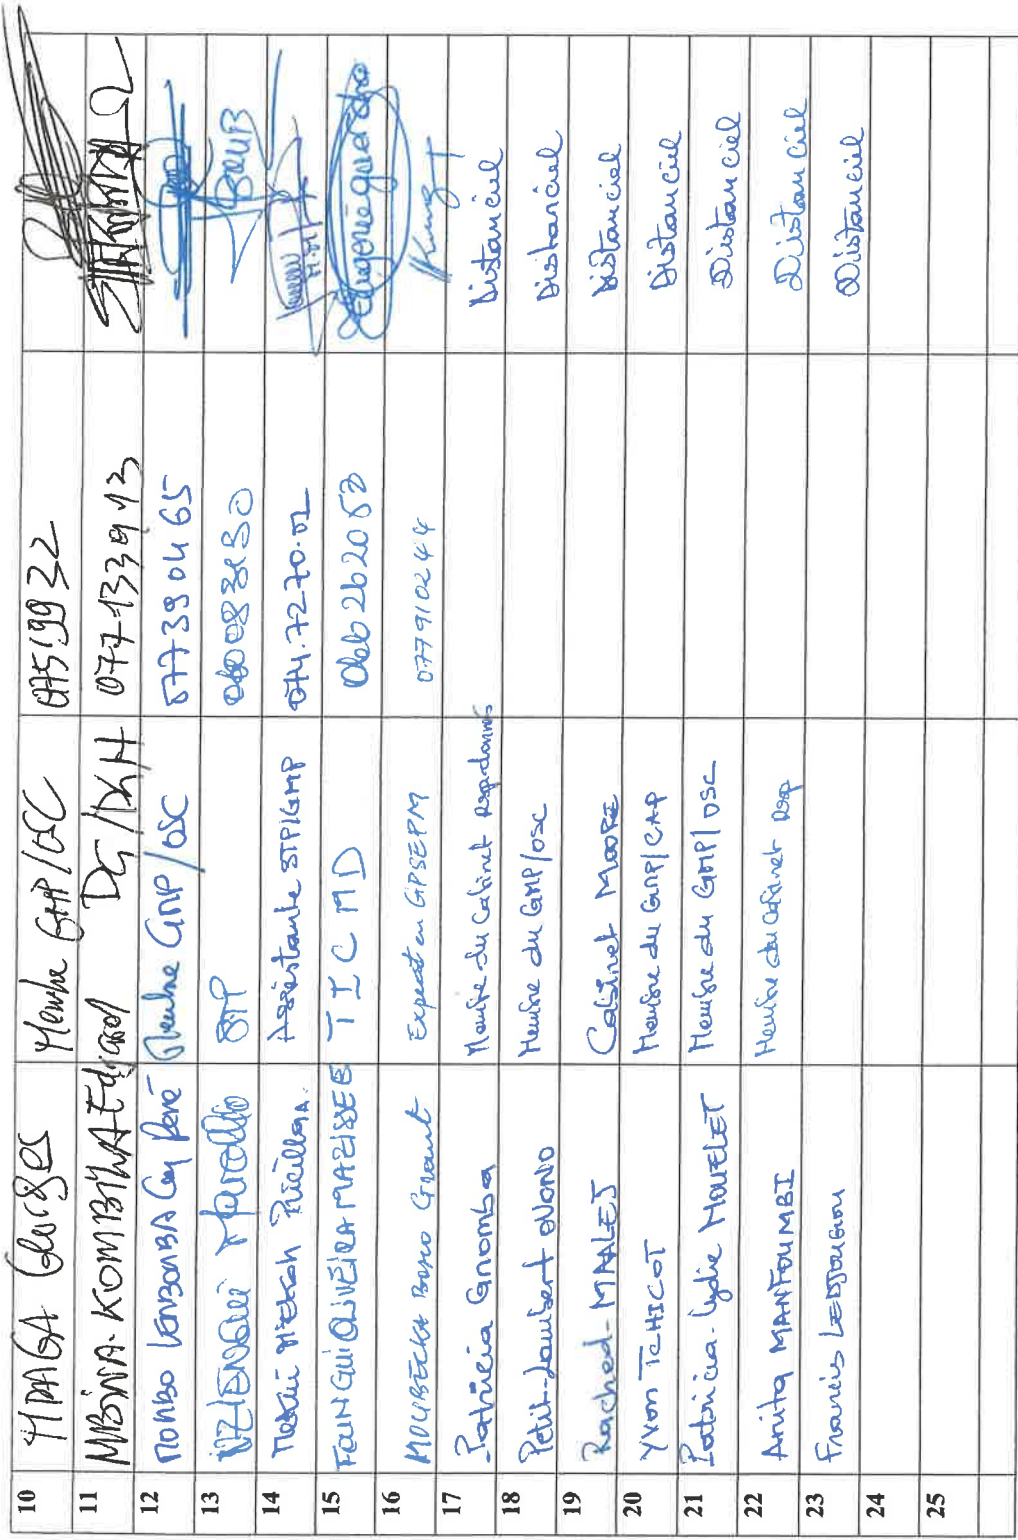 10 MPAGA Georges Membre GMP/OSC 07519932
11 MBINA-KOMBILA Edgard DG/DGH 077133913
12 MOMBO Guy René Membre GMP/OSC 077390465
13 STP
14 Assistante STP/GMP 074.7270.02
15 FOUNGUI OLIVEIRA MAZISSEB T I C M D 066262052
16 MOUBECKA Bosco Expert en GPSEPM 077910244
17 Patricia Gnomba Membre du Cabinet Distanciel
18 Petit-Lambert OVONO Membre du GMP/OSC Distanciel
19 Rached-MAALEJ Cabinet MOORE Distanciel
20 Yvon TCHICOT Membre du GMP/CAP Distanciel
21 Patricia-Lydie MOUELET Membre du GMP/OSC Distanciel
22 Anita MANFOUMBI Membre du Cabinet Distanciel
23 Francis LEDJOUGOU Distanciel
24
25